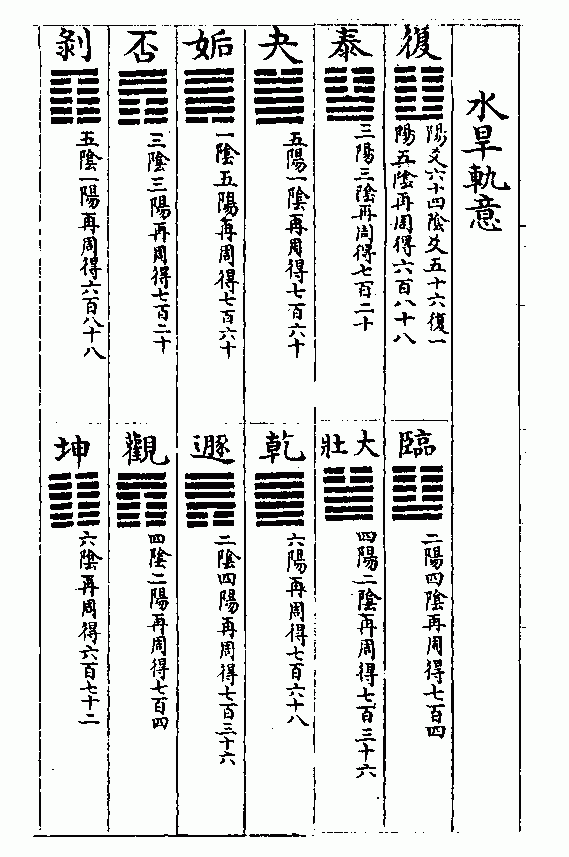 水旱軌意
復
陽爻六十四陰爻五十六復一
陽五陰再周得六百八十八
臨
二陽四陰再周得七百四
泰
三陽三陰再周得七百二十
大壯
四陽二陰再周得七百三十六
夬
五陽一陰再周得七百六十
乾
六陽再周得七百六十八
姤
一陰五陽再周得七百六十
遯
二陰四陽再周得七百三十六
否
三陰三陽再周得七百二十
觀
四陰二陽再周得七百四
剝
五陰一陽再周得六百八十八
坤
六陰再周得六百七十二